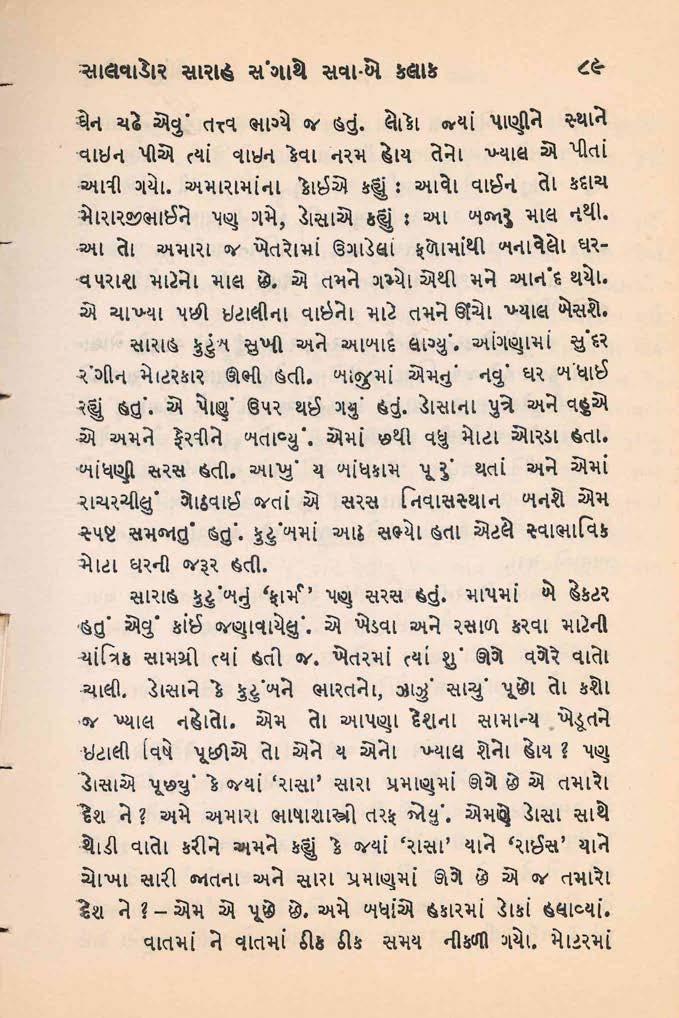 સાલવાડોર સારાહ સંગાથે સવા-બે કલાક ૮૯
ઘેન ચઢે એવું તત્ત્વ ભાગ્યે જ હતું. લોકો જ્યાં પાણીને સ્થાને
વાઇન પીએ ત્યાં વાઇન કેવા નરમ હોય તેનો ખ્યાલ એ પીતાં
આવી ગયો. અમારામાંના કોઈએ કહ્યું : આવો વાઈન તો કદાચ
મોરારજીભાઈને પણ ગમે, ડોસાએ કહ્યું : આ બજારુ માલ નથી.
આ તો અમારા જ ખેતરોમાં ઉગાડેલાં ફળોમાંથી બનાવેલો ઘર-
વપરાશ માટેનો માલ છે. એ તમને ગમ્યો એથી મને આનંદ થયો.
એ ચાખ્યા પછી ઇટાલીના વાઇનો માટે તમને ઊંચો ખ્યાલ બેસશે.
સારાહ કુટુંબ સુખી અને આબાદ લાગ્યું. આંગણામાં સુંદર
રંગીન મોટરકાર ઊભી હતી. બાજુમાં એમનું નવું ઘર બંધાઈ
રહ્યું હતું. એ પોણું ઉપર થઈ ગયું હતું. ડોસાના પુત્રે અને વહુએ
એ અમને ફેરવીને બતાવ્યું. એમાં છથી વધુ મોટા ઓરડા હતા.
બાંધણી સરસ હતી. આખું ય બાંધકામ પૂરું થતાં અને એમાં
રાચરચીલું ગોઠવાઈ જતાં એ સરસ નિવાસસ્થાન બનશે એમ
સ્પષ્ટ સમજાતું હતું. કુટુંબમાં આઠ સભ્યો હતા એટલે સ્વાભાવિક
મોટા ઘરની જરૂર હતી.
સારાહ કુટુંબનું ‘ફાર્મ’ પણ સરસ હતું. માપમાં બે હેકટર
હતું એવું કાંઈ જણાવાયેલું. એ ખેડવા અને રસાળ કરવા માટેની
યાંત્રિક સામગ્રી ત્યાં હતી જ. ખેતરમાં ત્યાં શું ઊગે વગેરે વાતો
ચાલી. ડોસાને કે કુટુંબને ભારતનો, ઝાઝું સાચું પૂછો તો કશો
જ ખ્યાલ નહોતો. એમ તો આપણા દેશના સામાન્ય ખેડૂતને
ઇટાલી વિષે પૂછીએ તો એને ય એનો ખ્યાલ શેનો હોય ? પણ
ડોસાએ પૂછ્યું કે જ્યાં ‘રાસા’ સારા પ્રમાણમાં ઊગે છે એ તમારો
દેશ ને ? અમે અમારા ભાષાશાસ્ત્રી તરફ જોયું. એમણે ડોસા સાથે
થોડી વાતો કરીને અમને કહ્યું કે જ્યાં ‘રાસા’ યાને ‘રાઈસ’ યાને
ચોખા સારી જાતના અને સારા પ્રમાણમાં ઊગે છે એ જ તમારો
દેશ ને ? – એમ એ પૂછે છે. અમે બધાંએ હકારમાં ડોકાં હલાવ્યાં.
વાતમાં ને વાતમાં ઠીક ઠીક સમય નીકળી ગયો. મોટરમાં